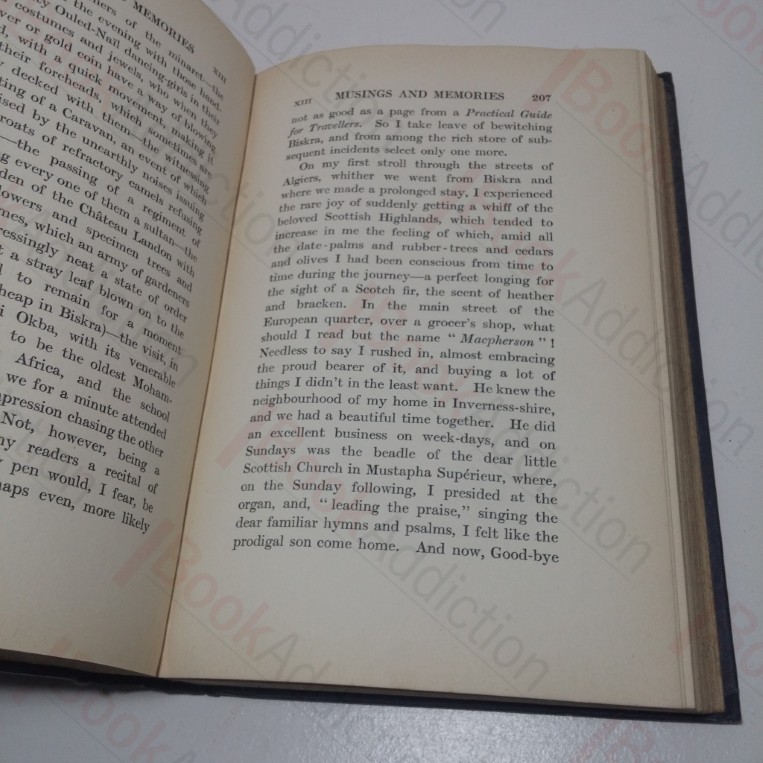 MEMORIES XIII
ners of the minaret—the
the evening with those hand-
ty Ouled-Naïl dancing-girls in their
costumes and jewels, who when they
ver or gold coin have a way of blowing
d, with a quick movement, making it
their foreheads, which sometimes are
y decked with them—the witnessing
ting of a Caravan, an event of which
ised by the unearthly noises issuing
roats of refractory camels refusing
—the passing of a regiment of
g every one of them a sultan—the
den of the Château Landon with
lowers and specimen trees and
mes, which an army of gardeners
ressingly neat a state of order
t a stray leaf blown on to the
d to remain for a moment
cheap in Biskra)—the visit, in
i Okba, with its venerable
to be the oldest Moham-
Africa, and the school
we for a minute attended
pression chasing the other
Not, however, being a
my readers a recital of
pen would, I fear, be
haps even, more likely
XIII MUSINGS AND MEMORIES 207
not as good as a page from a Practical Guide
for Travellers. So I take leave of bewitching
Biskra, and from among the rich store of sub-
sequent incidents select only one more.
On my first stroll through the streets of
Algiers, whither we went from Biskra and
where we made a prolonged stay, I experienced
the rare joy of suddenly getting a whiff of the
beloved Scottish Highlands, which tended to
increase in me the feeling of which, amid all
the date-palms and rubber-trees and cedars
and olives I had been conscious from time to
time during the journey—a perfect longing for
the sight of a Scotch fir, the scent of heather
and bracken. In the main street of the
European quarter, over a grocer's shop, what
should I read but the name "Macpherson"!
Needless to say I rushed in, almost embracing
the proud bearer of it, and buying a lot of
things I didn't in the least want. He knew the
neighbourhood of my home in Inverness-shire,
and we had a beautiful time together. He did
an excellent business on week-days, and on
Sundays was the beadle of the dear little
Scottish Church in Mustapha Supérieur, where,
on the Sunday following, I presided at the
organ, and, "leading the praise," singing the
dear familiar hymns and psalms, I felt like the
prodigal son come home. And now, Good-bye
BookAddiction